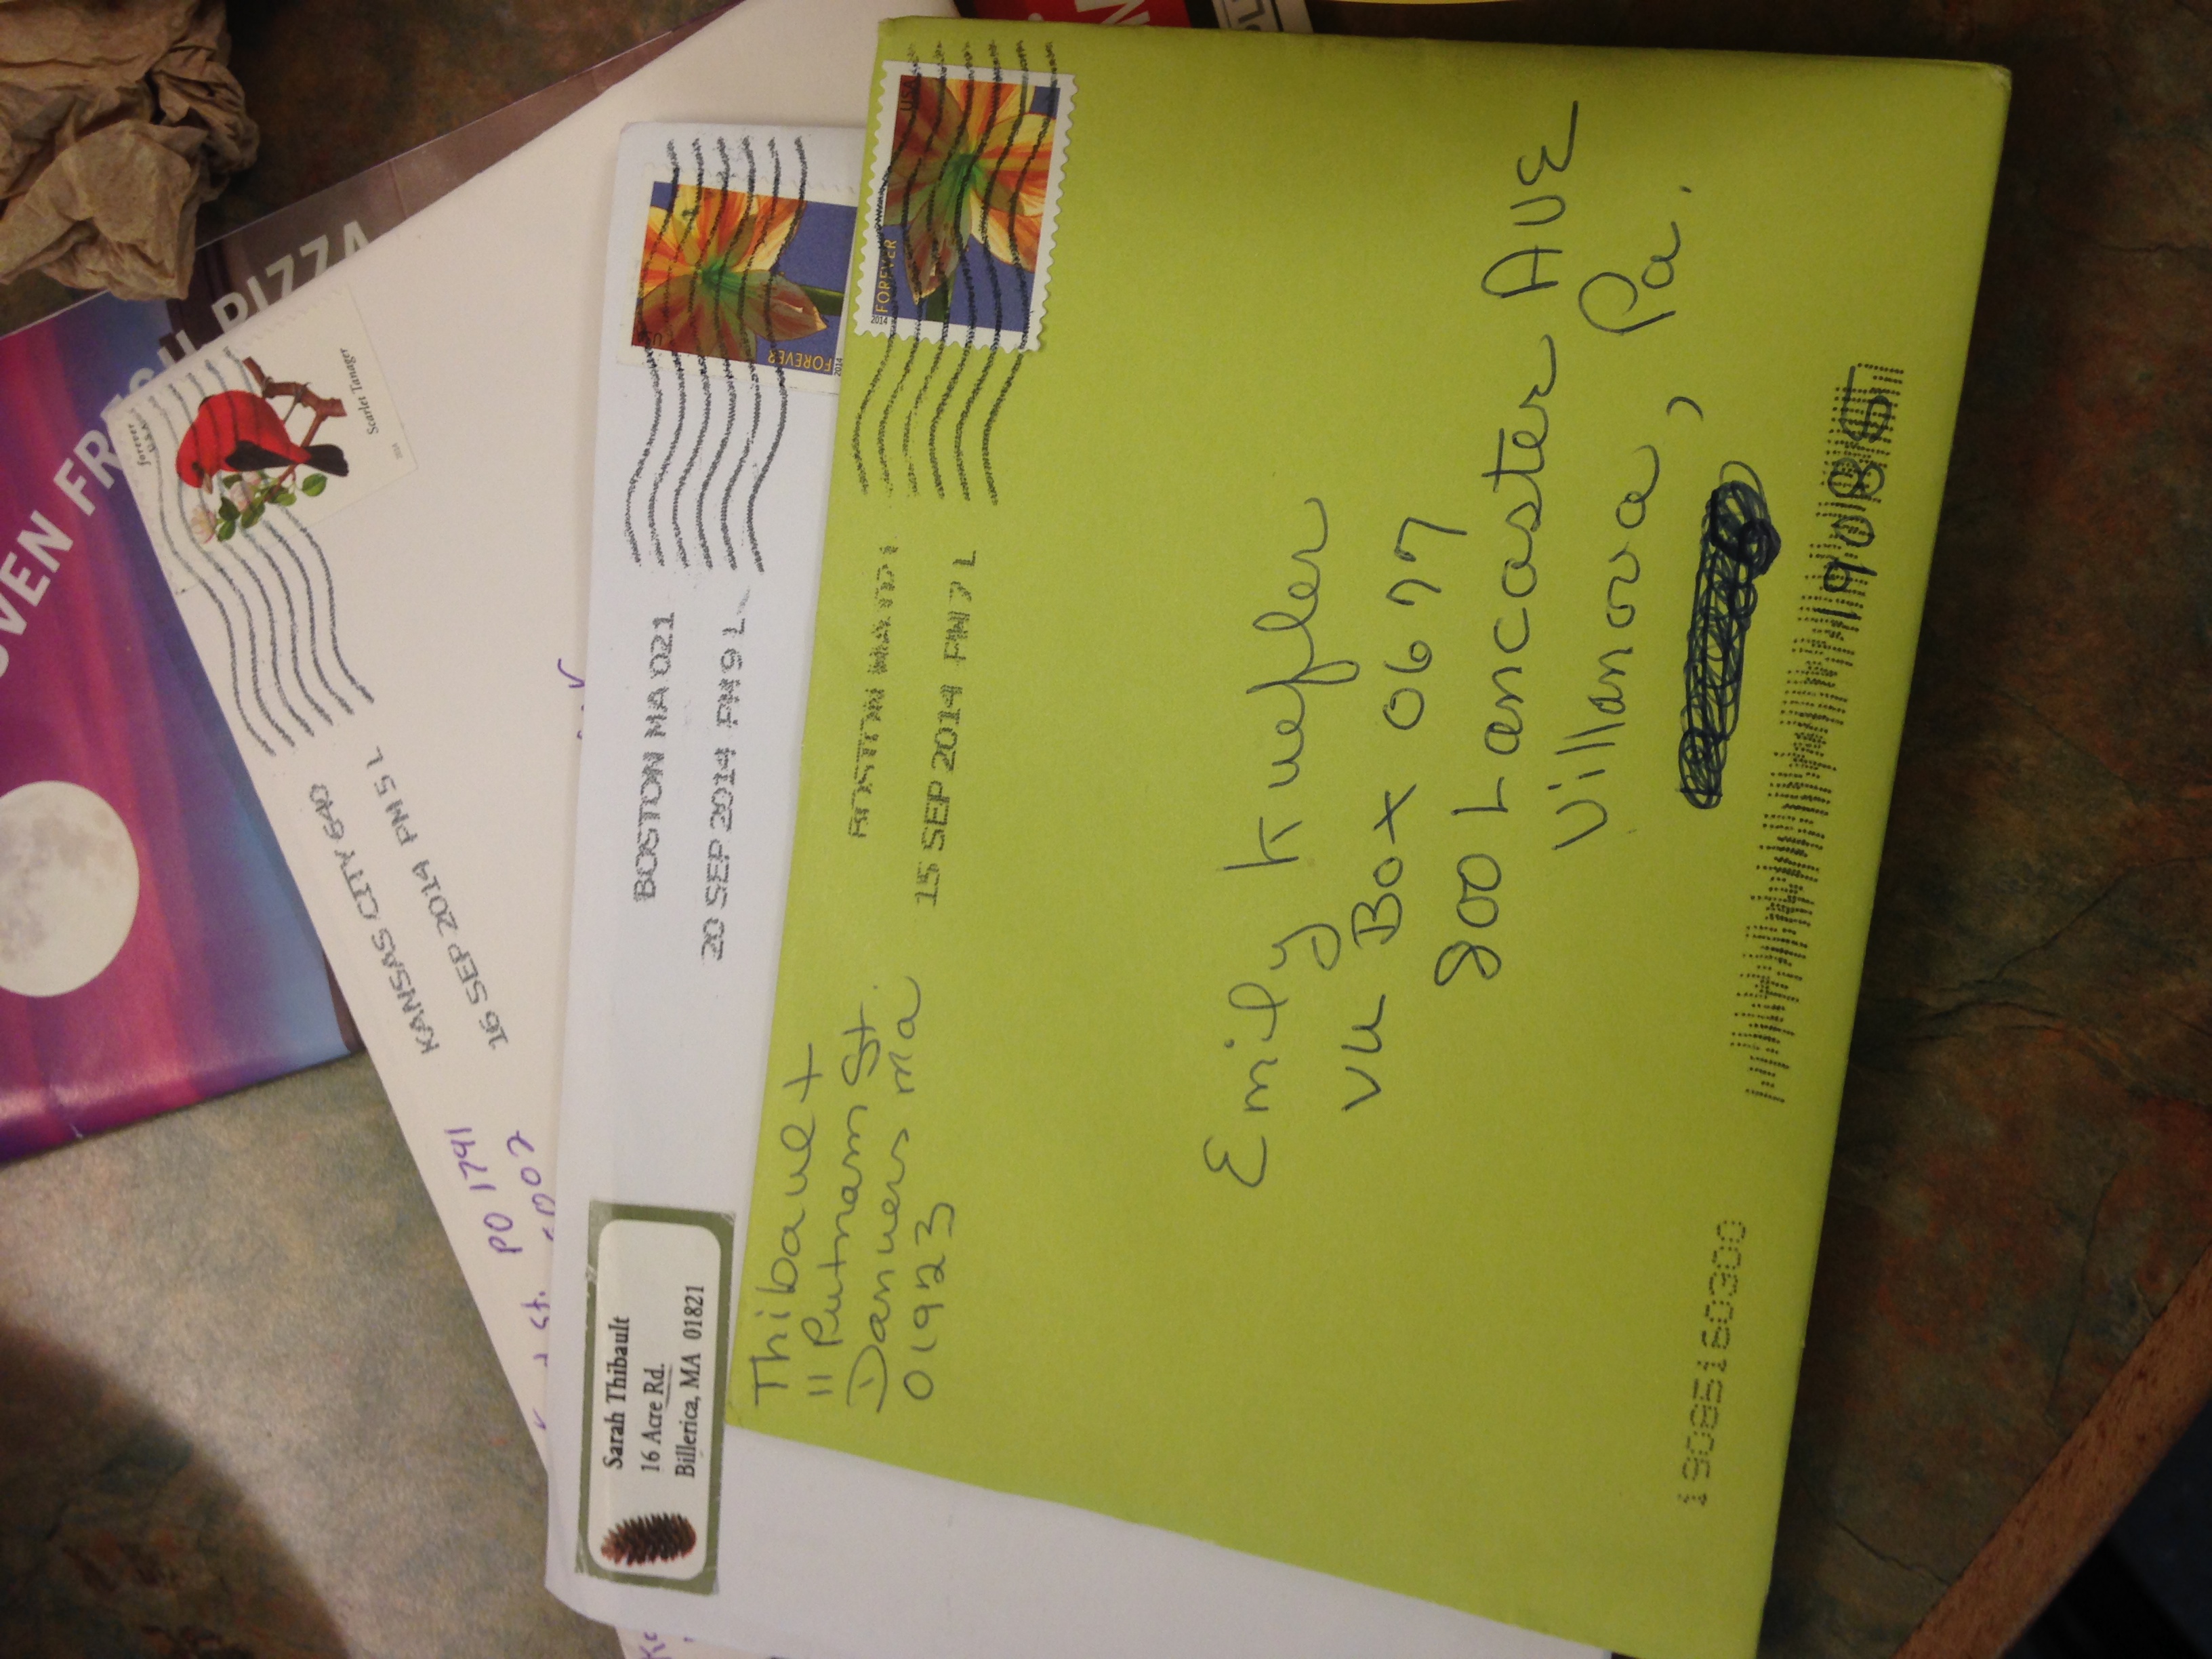 Thibault
11 Putnam St.
Danvers Ma
01923
BOSTON MA 01
15 SEP 2014 PM 7 L
USA
FOREVER
2014
Emily Kuefler
VU Box 0677
800 Lancaster AVE
Villanova, Pa.
19085
19085160300
Sarah Thibault
16 Acre Rd.
Billerica, MA 01821
BOSTON MA 021
20 SEP 2014 PM 9 L
FOREVER
2014
KANSAS CITY 640
16 SEP 2014 PM 5 L
forever
USA
Scarlet Tanager
PO 1741
St.
OVEN FRESH PIZZA